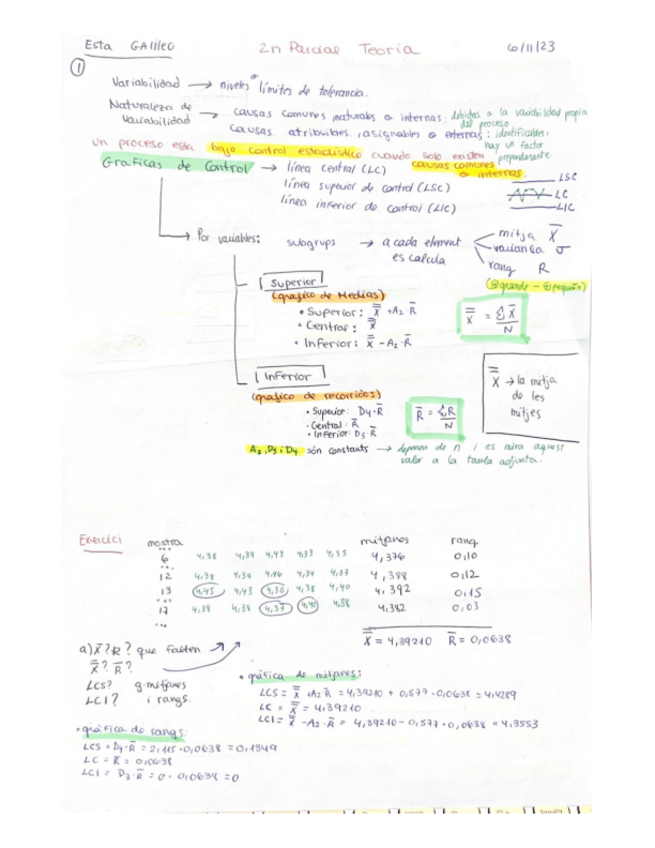 Esta GALILEO 2n Parcial Teoria 6/11/23
①
Variabilidad → niveles o límites de tolerancia.
Naturaleza de variabilidad → causas comunes, naturales o internas: debidas a la variabilidad propia del proceso
causas atribuibles, asignables o externas: identificables, hay un factor preponderante.
un proceso esta bajo control estadístico cuando solo existen causas comunes o internas.
Graficas de Control → línea central (LC)
línea superior de control (LSC)
línea inferior de control (LIC)
LSC
LC
LIC
Por variables: subgrups → a cada element es calcula
mitja X̄
variança σ
rang R
(⊕grande - ⊕pequeño)
Superior
(grafico de Medias)
• Superior: X̿ + A₂ · R̄
• Central: X̿
• Inferior: X̿ - A₂ · R̄
X̿ = ΣX̄/N
Inferior
(grafico de recorridos)
• Superior: D₄ · R̄
• Central: R̄
• Inferior: D₃ · R̄
R̄ = ΣR/N
X̿ → la mitja
de les
mitjes
A₂, D₃ i D₄ són constants → depenen de n i es mira aquest
valor a la taula adjunta.
Exercici
mostra mitjanes rang
...
6 4,38 4,39 4,43 4,33 4,35 4,376 0,10
...
12 4,38 4,39 4,46 4,34 4,37 4,388 0,12
13 4,45 4,43 4,30 4,38 4,40 4,392 0,15
...
17 4,38 4,38 4,37 4,40 4,38 4,382 0,03
...
X̿ = 4,39210 R̄ = 0,0638
a) X̄? R? que falten
X̿? R̄?
LCS? g. mitjanes
LCI? i rangs.
• gràfica de mitjanes:
LCS = X̿ + A₂ · R̄ = 4,39210 + 0,577 · 0,0638 = 4,4289
LC = X̿ = 4,39210
LCI = X̿ - A₂ · R̄ = 4,39210 - 0,577 · 0,0638 = 4,3553
• gràfica de rangs:
LCS = D₄ · R̄ = 2,115 · 0,0638 = 0,1349
LC = R̄ = 0,0638
LCI = D₃ · R̄ = 0 · 0,0638 = 0